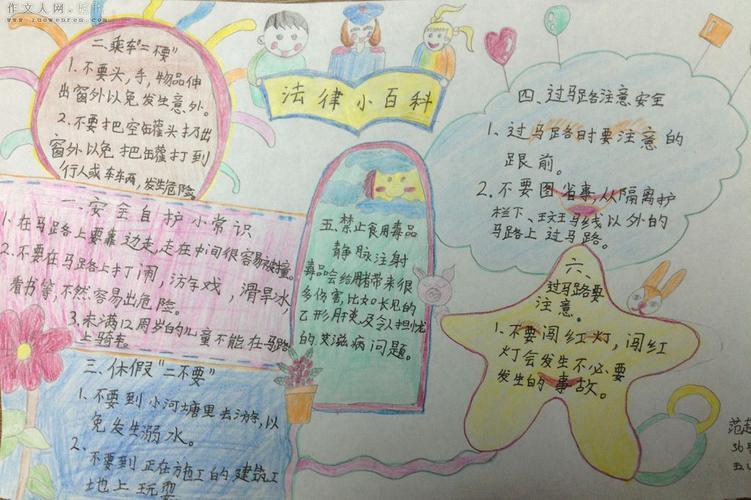 作文人网
www.zuowenren.com
法律小百科
二.乘车“二不要”
1.不要头,手,物品伸
出窗外以免发生意外。
2.不要把空缶罐头扔出
窗外以免把缶罐打到
行人或车车两,发生危险。
一.安全自护小常识
1.在马路上要靠边走,走在中间很容易被撞。
2.不要在马路上打闹,访字戏,滑旱冰,
看书等,不然容易出危险。
3.未满12周岁的儿童不能在马路
上骑车。
三.休假“二不要”
1.不要到小河塘里去游字,以
免发生溺水。
2.不要到正在施工的建筑工
地上玩耍
五、禁止食用毒品
静脉注射
毒品会给用者带来很
多伤害,比如长见的
乙形肝炎及令人担忧
的艾滋病问题。
四、过马路注意安全
1、过马路时要注意的
跟前。
2.不要图省事,从隔离护
栏下、斑马线以外的
马路上过马路。
六、
过马路要
注意。
1.不要闯红灯,闯红
灯会发生不必要
发生的事故。
范
36号
五